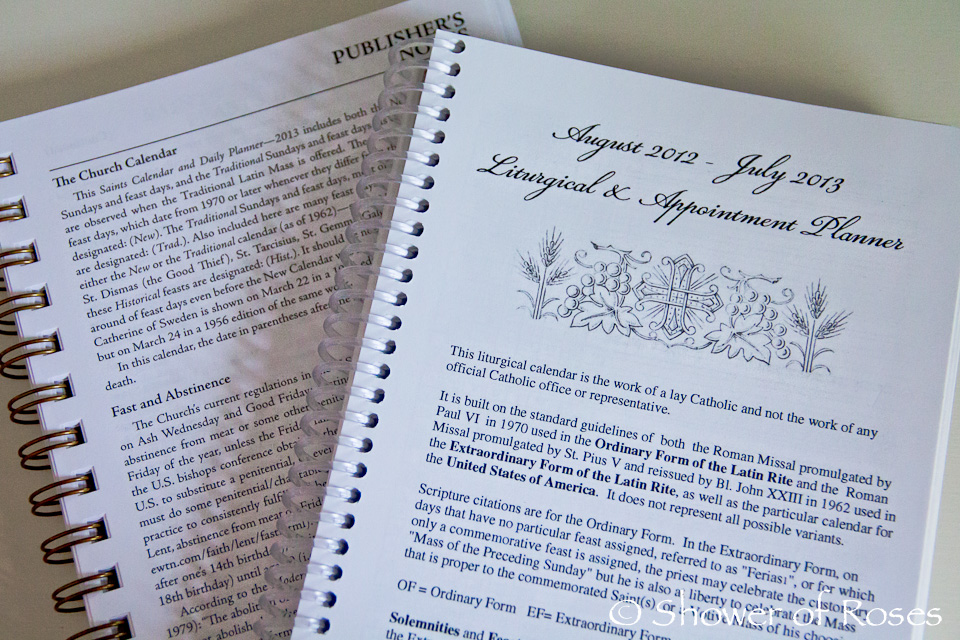 PUBLISHER'S
The Church Calendar
This Saints Calendar and Daily Planner—2013 includes both the
Sundays and feast days, and the Traditional Sundays and feast days, as
are observed when the Traditional Latin Mass is offered. The
feast days, which date from 1970 or later whenever they differ
designated: (New). The Traditional Sundays and feast days,
are designated: (Trad.). Also included here are many feast
either the New or the Traditional calendar (as of 1962)—
St. Dismas (the Good Thief), St. Tarcisius, St. Gemma
these Historical feasts are designated: (Hist.). It should
around of feast days even before the New Calendar
Catherine of Sweden is shown on March 22 in a
but on March 24 in a 1956 edition of the same
In this calendar, the date in parentheses after
death.
Fast and Abstinence
The Church's current regulations in
on Ash Wednesday and Good Friday
abstinence from meat or some other
Friday of the year, unless the Friday
the U.S. bishops conference
U.S. to substitute a penitential,
must do some penitential/
practice to consistently
Lent, abstinence from meat
ewtn.com/faith/lent/fast
after one's 14th birthday
18th birthday) until
According to the
1979): "The
August 2012 - July 2013
Liturgical & Appointment Planner
This liturgical calendar is the work of a lay Catholic and not the work of any
official Catholic office or representative.
It is built on the standard guidelines of both the Roman Missal promulgated by
Paul VI in 1970 used in the Ordinary Form of the Latin Rite and the Roman
Missal promulgated by St. Pius V and reissued by Bl. John XXIII in 1962 used in
the Extraordinary Form of the Latin Rite, as well as the particular calendar for
the United States of America. It does not represent all possible variants.
Scripture citations are for the Ordinary Form. In the Extraordinary Form, on
days that have no particular feast assigned, referred to as "Ferias", or for which
only a commemorative feast is assigned, the priest may celebrate the customary
"Mass of the Preceding Sunday" but he is also at liberty to celebrate the Mass
that is proper to the commemorated Saint(s) or a Mass of his
OF = Ordinary Form EF= Extraordinary Form
Solemnities and
the
© Shower of Roses